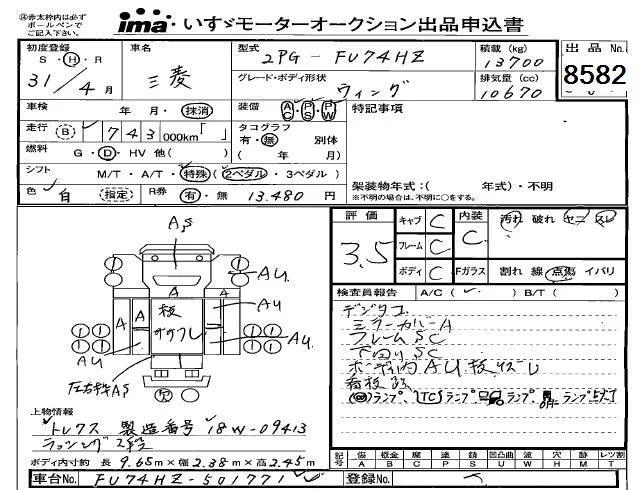 ※赤太枠内は必ずボールペンでご記入下さい。
ima・いすゞモーターオークション出品申込書
初度登録 S・H・R 31/4月
車名 三菱
型式 2PG-FU74HZ
積載(kg) 13700
グレード・ボディ形状 ウィング
排気量(cc) 10670
出品No. 8582
車検 年 月・抹消
装備 AC・PS・PW
特記事項
走行 (B) 743,000km「 」
タコグラフ 有・無 別体 ( 年 月)
燃料 G・D・HV 他( )
シフト M/T・A/T・特殊(2ペダル・3ペダル)
架装物年式:( 年式)・不明
※不明の場合は、不明に○をする。
色 白 指定 R券 有・無 13,480円
評価 3.5
キャブ C
フレーム C
ボディ C
内装 C
汚れ 破れ ヤニ スレ
Fガラス 割れ 線 点傷 イバリ
検査員報告 A/C( ) B/T( )
デジタコ
ミラーカバーA
フレームSC
下回りSC
ボディ内AU、板ササクレ
看板跡
ランプ ランプ ランプ
AS
AU
A
A
A
A
AU
AU
AU
板ササクレ
左右ドアAS
欠
上物情報
トレクス 製造番号 18W-09413
ラッシング2段
ボディ内寸約 長 9.65m×幅 2.38m×高 2.45m
記号 傷A 板金B 腐C 塗P 錆S 凹凸曲U 波W 穴H 跡M レツ割T
車台No. FU74HZ-501771
登録No.